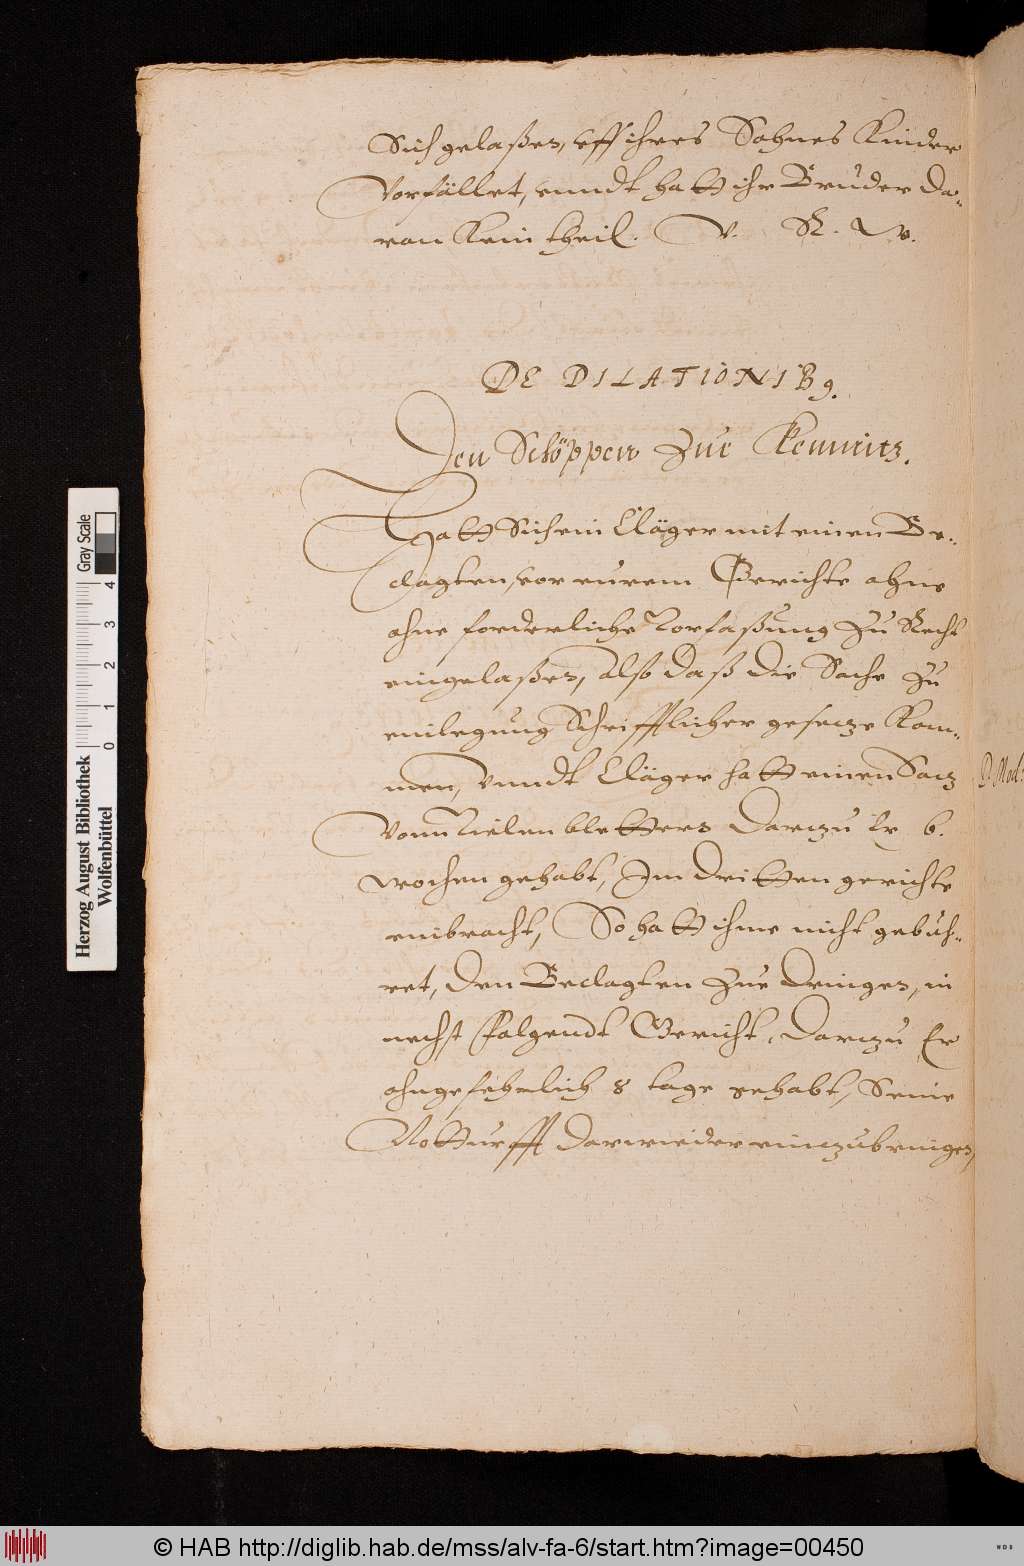 Sich gelaßen, vff ihres Sohnes Kinder
Vorfället, vnndt hatt ihr Bruder Da¬
ran Kein theil. V. R. W.
DE DILATIONIB9.
Den Schöppen Zue Kemnitz.
Hatt Sich ein Cläger mit einen Be¬
clagten, vor eurem Gerichte ohne
ohne forderliche Vorfaßung Zu Recht
eingelaßen, Also Daß Die Sache Zu
einlegung Schrifftlicher gesecze Kom¬
men, Vnndt Cläger hatt einen Sacz
Vonn Vielen blettern Darczu Er 6.
wochen gehabt, Im Dritten gerichte
einbracht, So hatt ihme nicht gebüh¬
ret, Den Beclagten Zue Dringen, in
nechst ffolgendt Gericht, Darczu Er
ohngefehrlich 8 tage gehabt, Seine
Notturfft Darwieder einczubringen,
Herzog August Bibliothek
Wolfenbüttel
0 1 2 3 4
Gray Scale
© HAB http://diglib.hab.de/mss/alv-fa-6/start.htm?image=00450
WDB